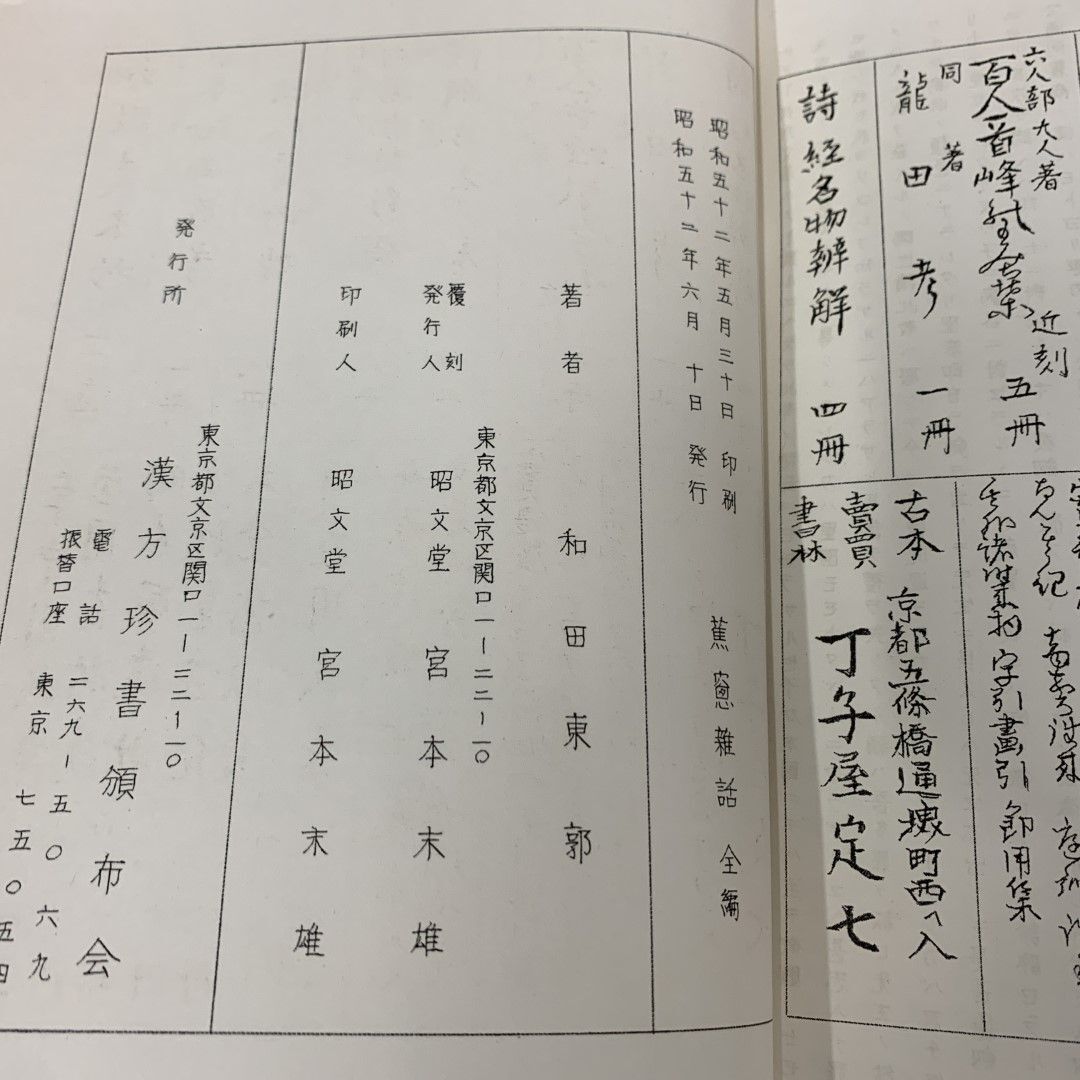 六人部大人著
百人一首峰
近刻
五冊
同著
龍田考
一冊
詩経名物辨解
四冊
字引畫引
節用集
古本
賣買
書林
京都五條橋通堺町西へ入
丁子屋定七
昭和五十二年五月三十日 印刷
昭和五十二年六月 十日 発行
蕉窓雜話 全編
著者 和田東郭
東京都文京区関口一ー二二ー一〇
覆刻
発行人 昭文堂 宮本末雄
印刷人 昭文堂 宮本末雄
発行所
東京都文京区関口一ー二二ー一〇
漢方珍書頒布会
電話 二六九ー五〇六九
振替口座 東京 七五〇五四